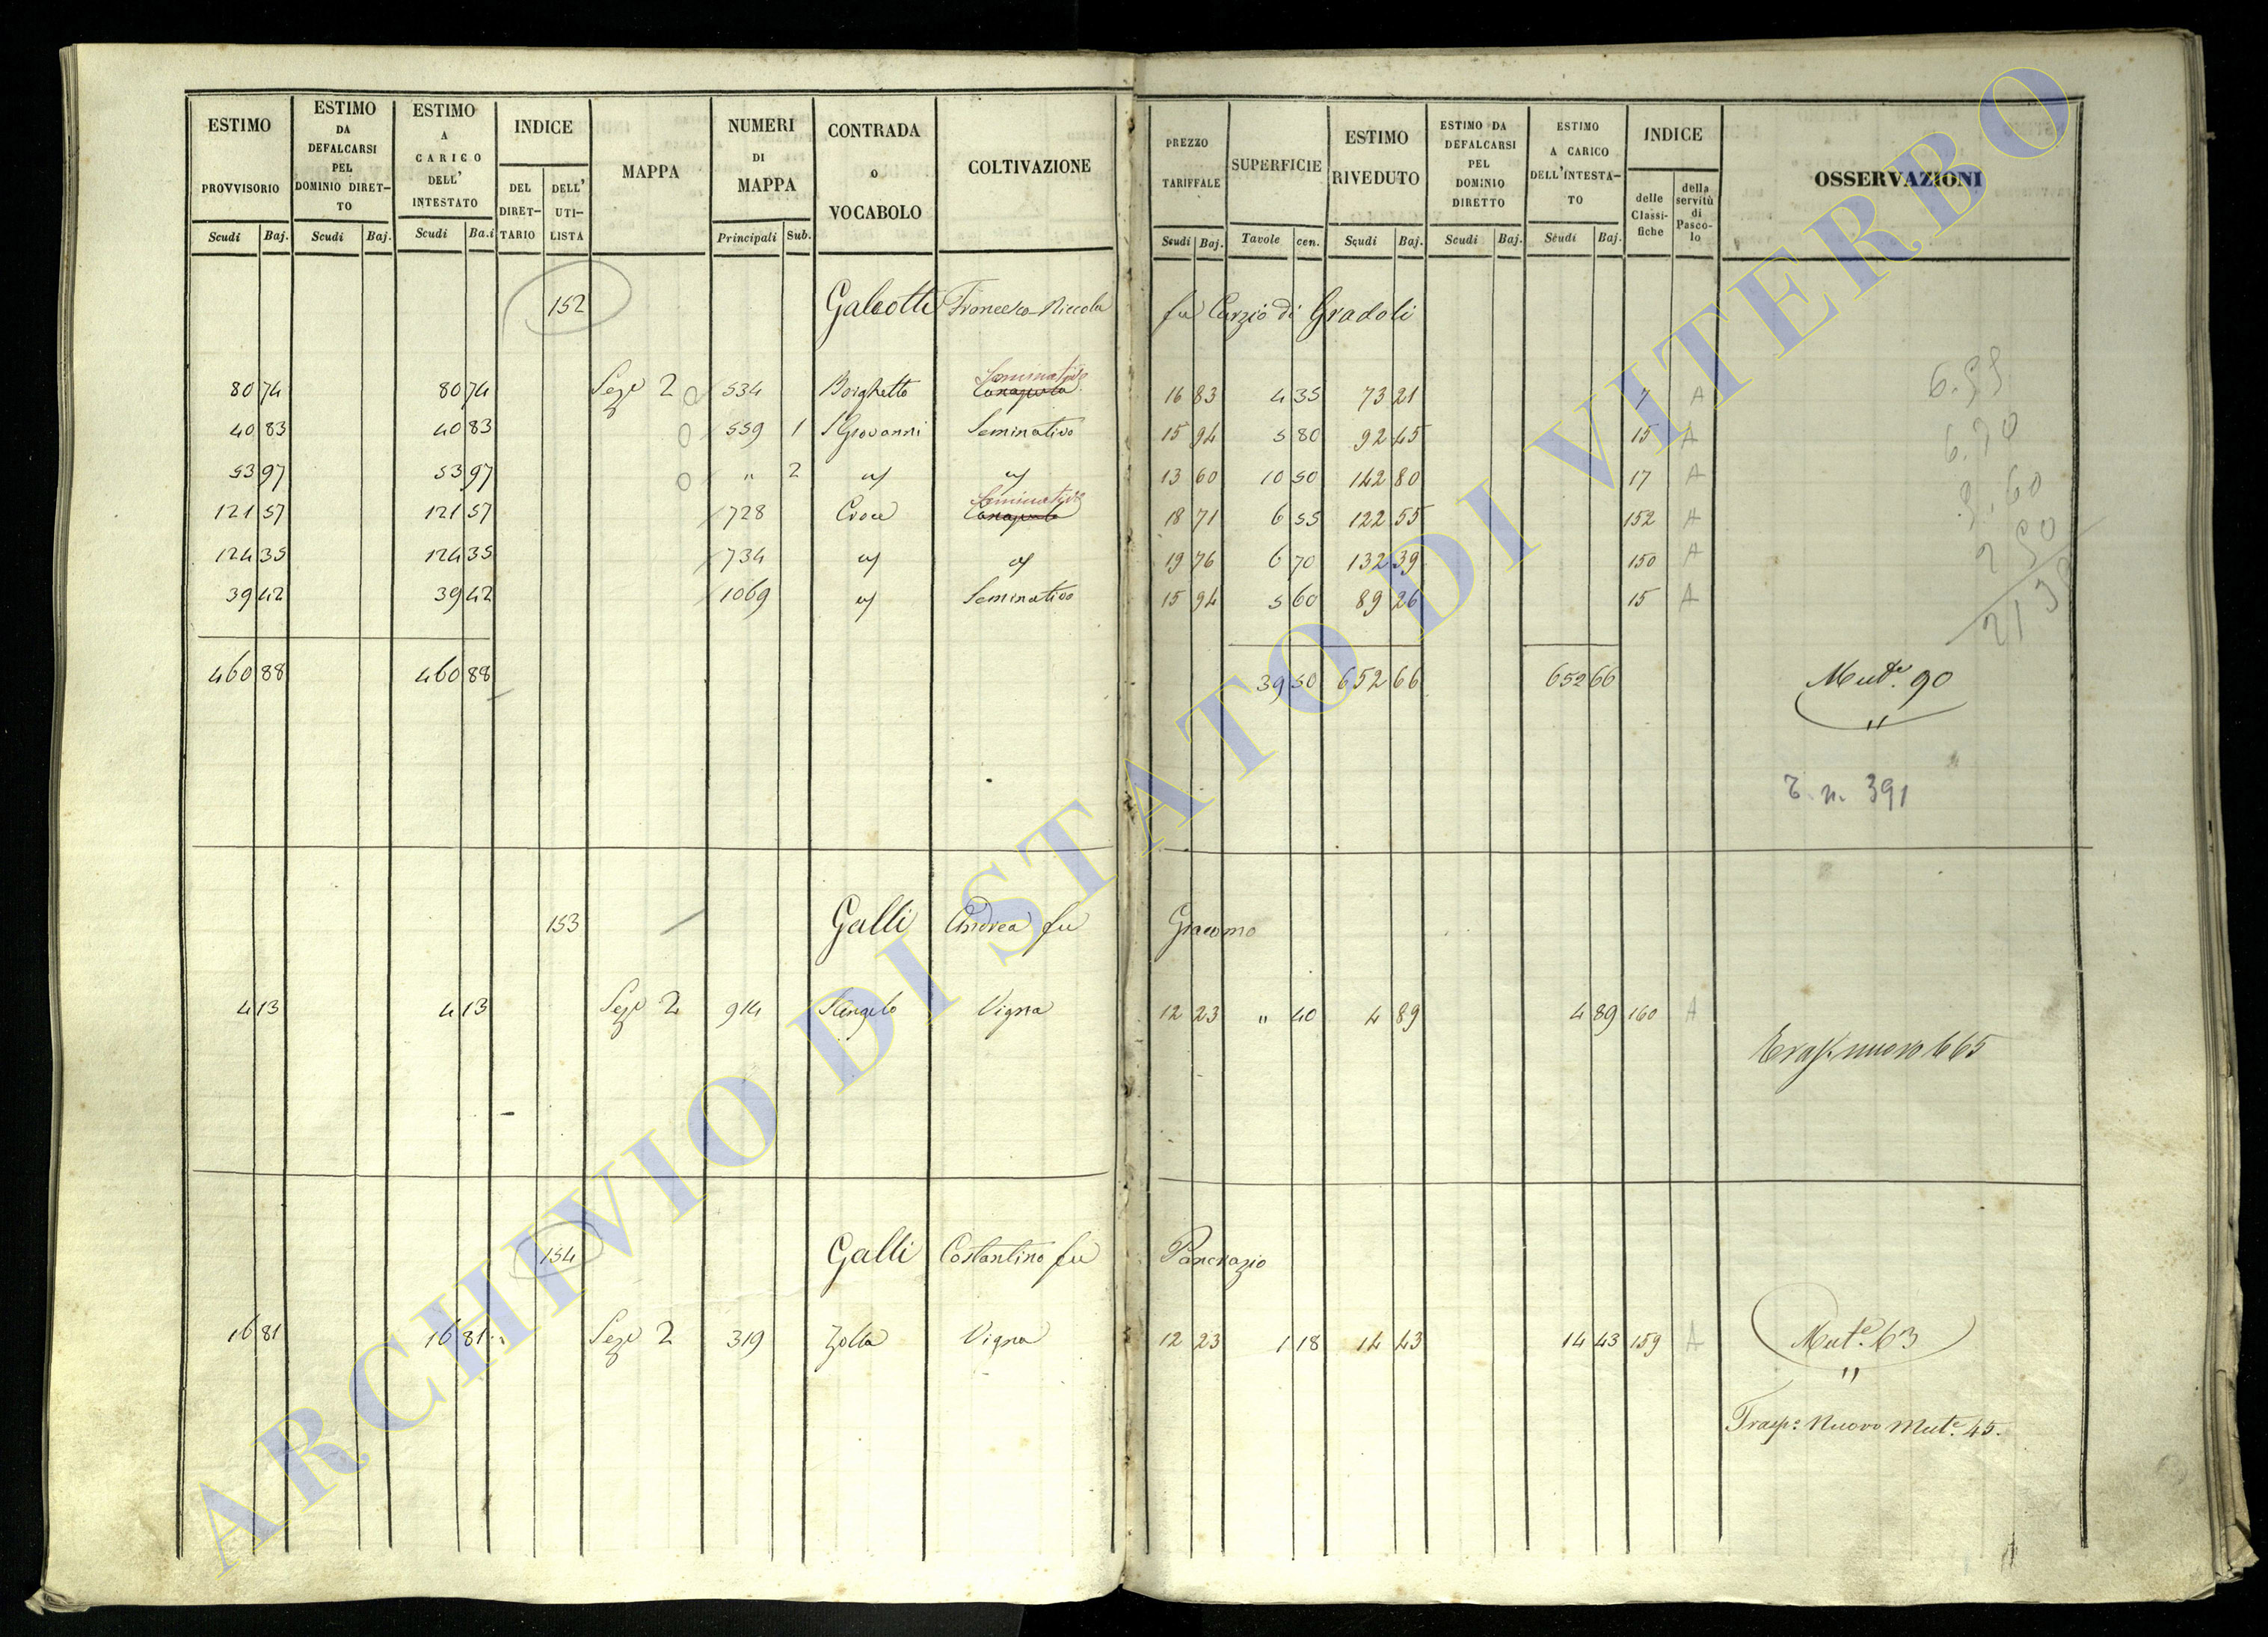 ESTIMO PROVVISORIO Scudi Baj.
ESTIMO DA DEFALCARSI PEL DOMINIO DIRET-TO Scudi Baj.
ESTIMO A CARICO DELL' INTESTATO Scudi Ba.i
INDICE DEL DIRET-TARIO DELL' UTI-LISTA
MAPPA
NUMERI DI MAPPA Principali Sub.
CONTRADA O VOCABOLO
COLTIVAZIONE
PREZZO TARIFFALE Scudi Baj.
SUPERFICIE Tavole cen.
ESTIMO RIVEDUTO Scudi Baj.
ESTIMO DA DEFALCARSI PEL DOMINIO DIRETTO Scudi Baj.
ESTIMO A CARICO DELL'INTESTA-TO Scudi Baj.
INDICE delle Classi-fiche della servitù di Pasco-lo
OSSERVAZIONI
152 Galeotti Francesco Niccola fu Curzio di Gradoli
80 74 80 74 Seze 2 534 Borghetto Seminativo 16 83 4 35 73 21 7 A
40 83 40 83 559 1 S Giovanni Seminativo 15 94 5 80 92 45 15 A
53 97 53 97 " 2 13 60 10 50 142 80 17 A
121 57 121 57 728 Croce Seminativo 18 71 6 55 122 55 152 A
124 35 124 35 734 19 76 6 70 132 39 150 A
39 42 39 42 1069 Seminativo 15 94 5 60 89 26 15 A
460 88 460 88 39 50 652 66 652 66 Mute 90
n. 391
153 Galli Andrea fu Giacomo
4 13 4 13 Seze 2 914 S Angelo Vigna 12 23 " 40 4 89 4 89 160 A
nuovo 665
154 Galli Costantino fu Pancrazio
16 81 16 81 Seze 2 319 Zolla Vigna 12 23 1 18 14 43 14 43 159 A Mute 63
Trasp: Nuovo Mute 45.
ARCHIVIO DI STATO DI VITERBO